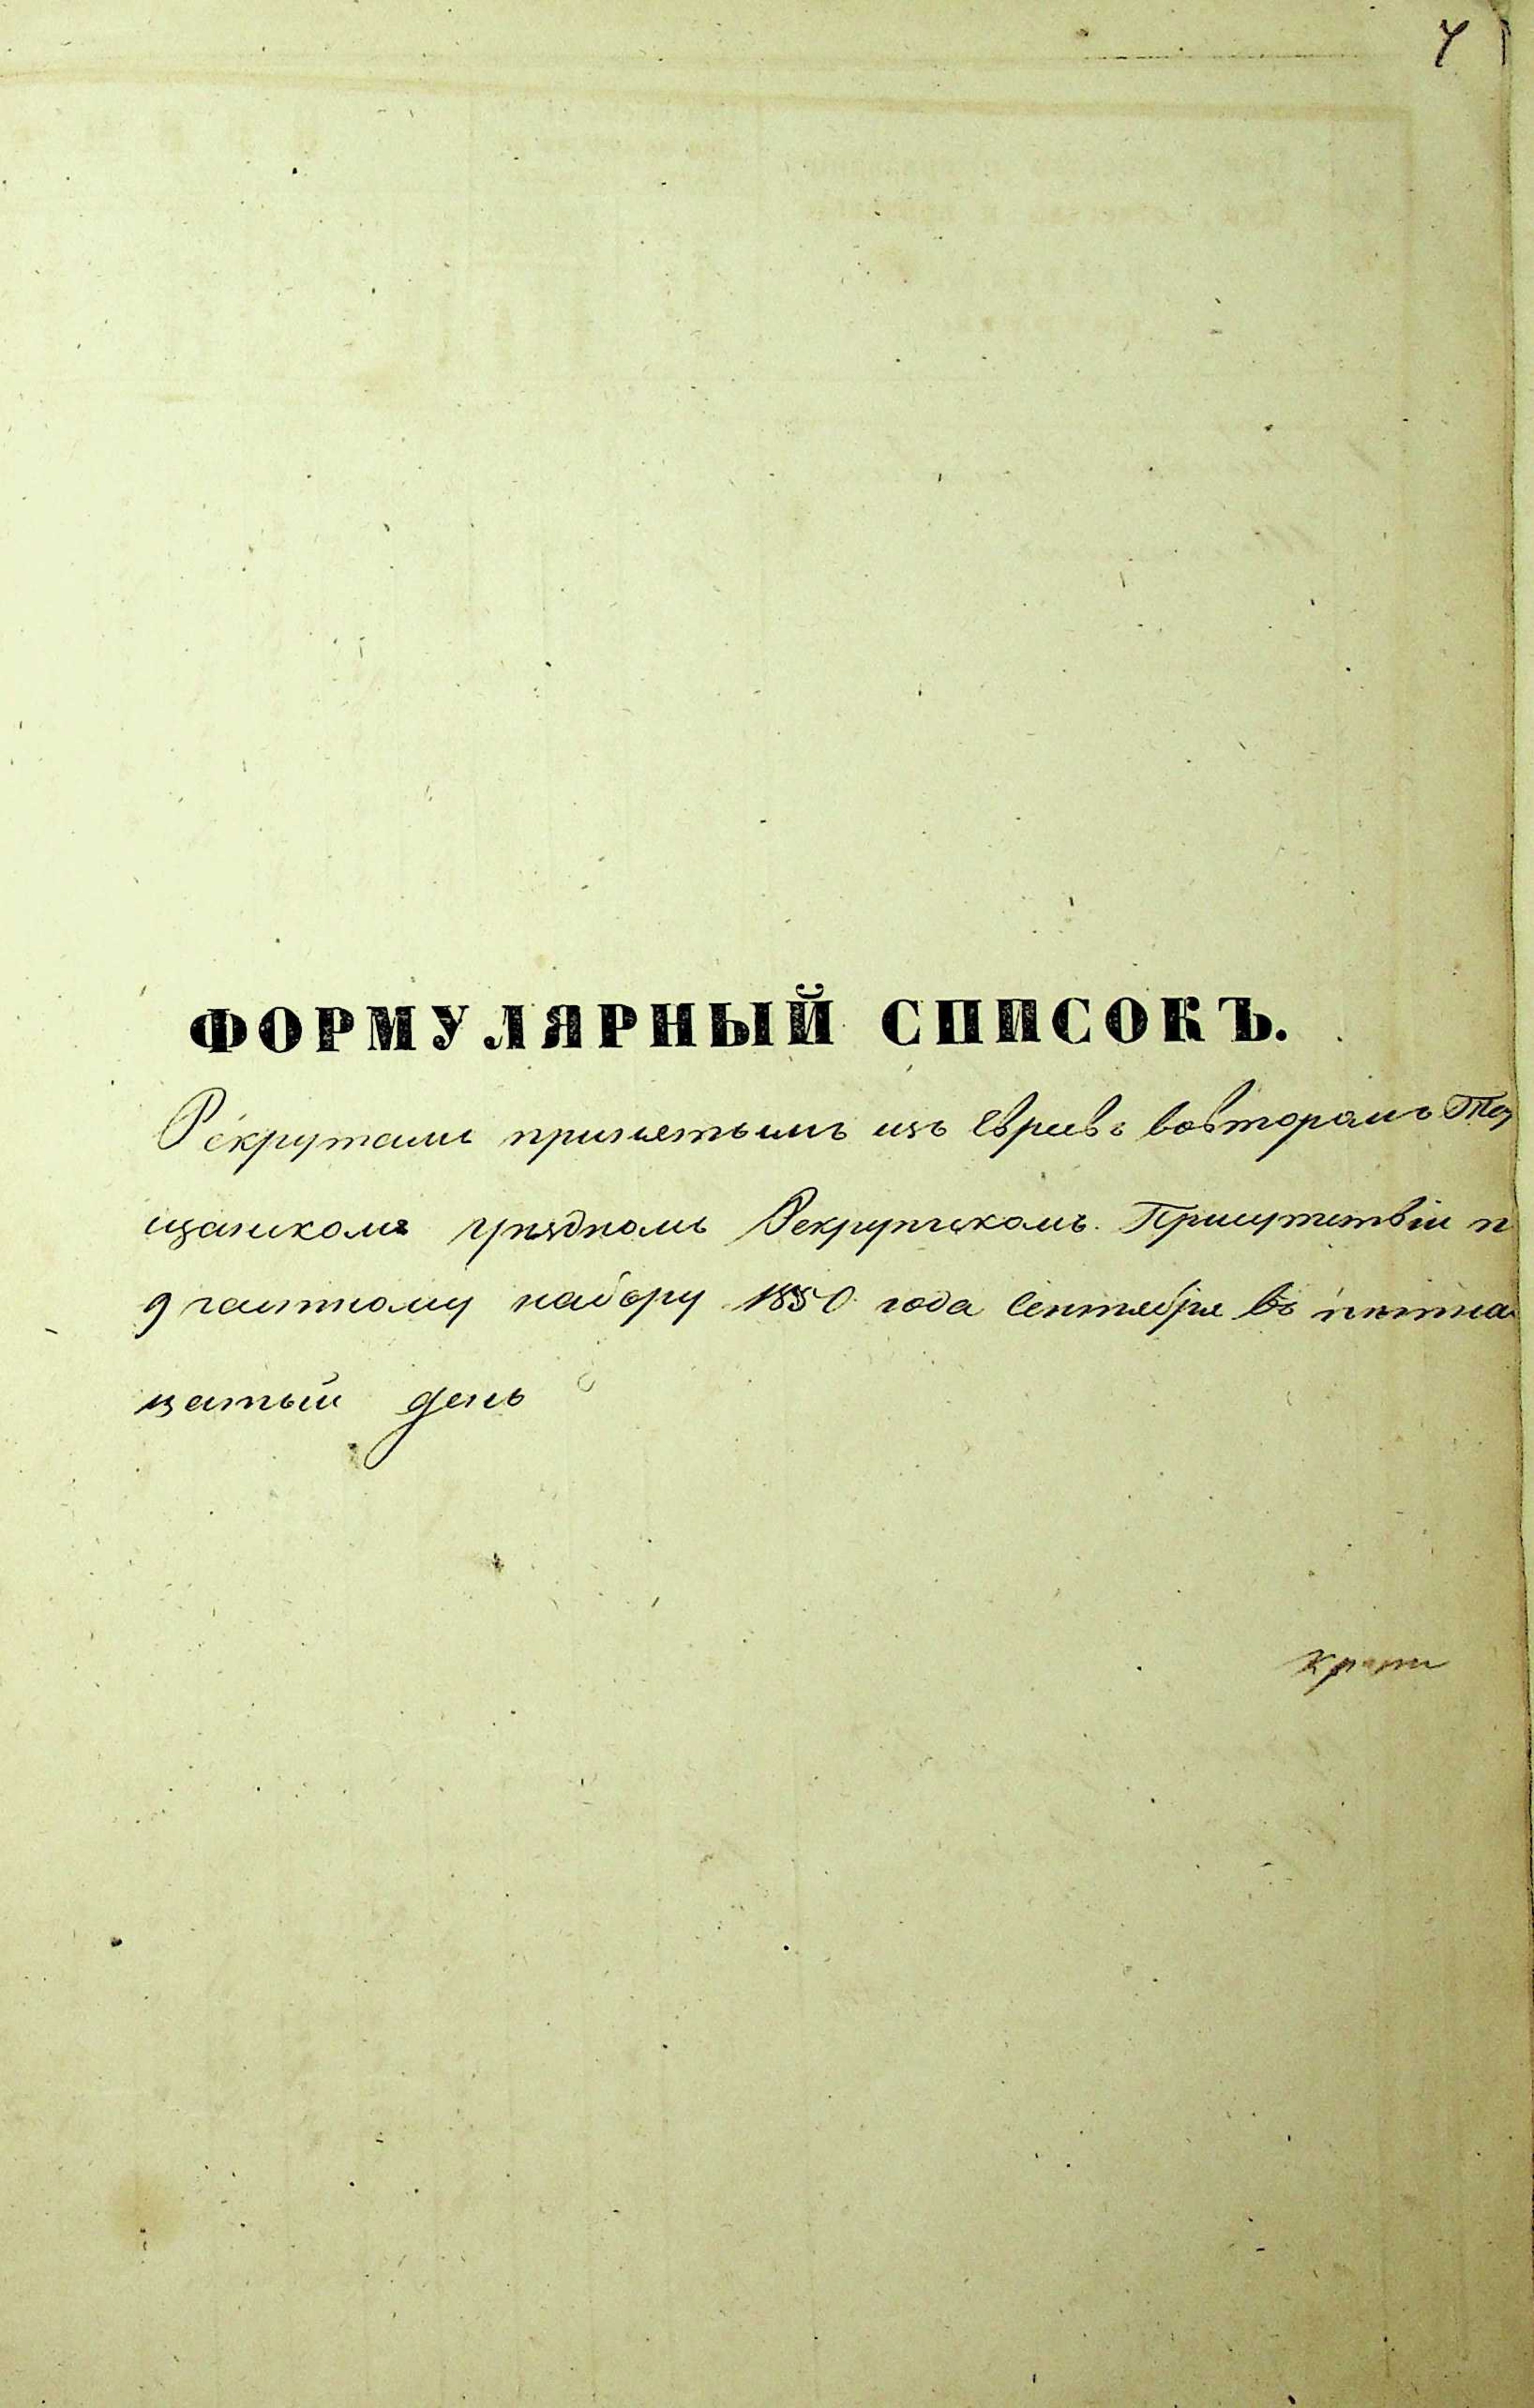 7
ФОРМУЛЯРНЫЙ СПИСОКЪ.
Рекрутамъ принятымъ изъ Евреевъ вовторомъ Тар
щанскомъ уѣздномъ Рекрутскомъ Присутствіи п
9 частному набору 1850 года Сентября въ пятна
цатый день